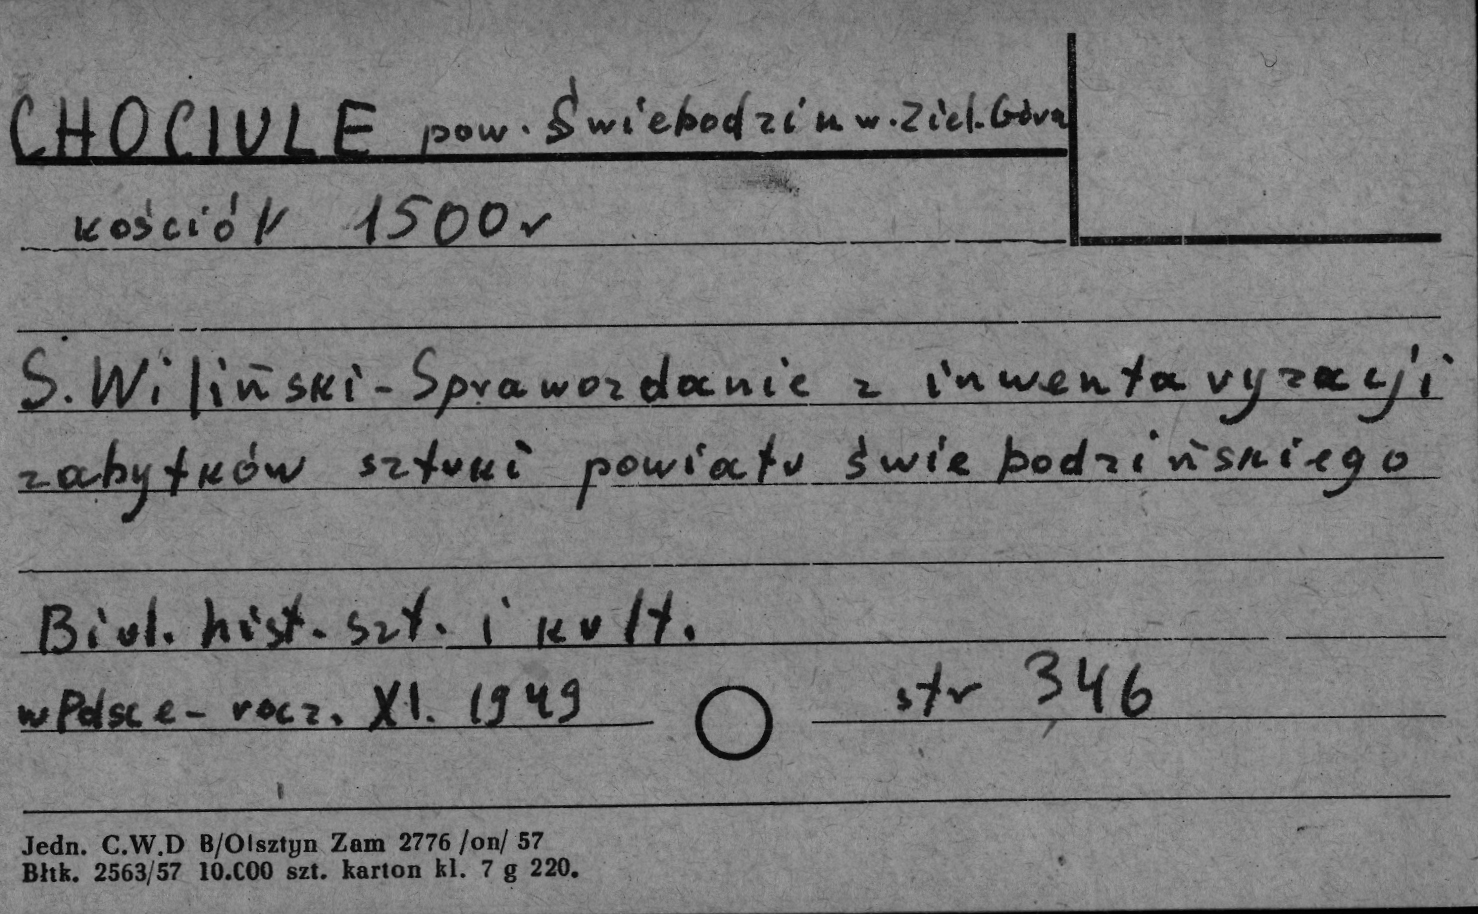 CHOCIULE pow. Świebodzin w. Ziel. Góra
kościół 1500 r
S. Wiliński - Sprawozdanie z inwentaryzacji
zabytków sztuki powiatu świebodzińskiego
Biul. hist. szt. i kult.
w Polsce - rocz. XI. 1949 str 346
Jedn. C.W.D B/Olsztyn Zam 2776 /on/ 57
Błtk. 2563/57 10.000 szt. karton kl. 7 g 220.